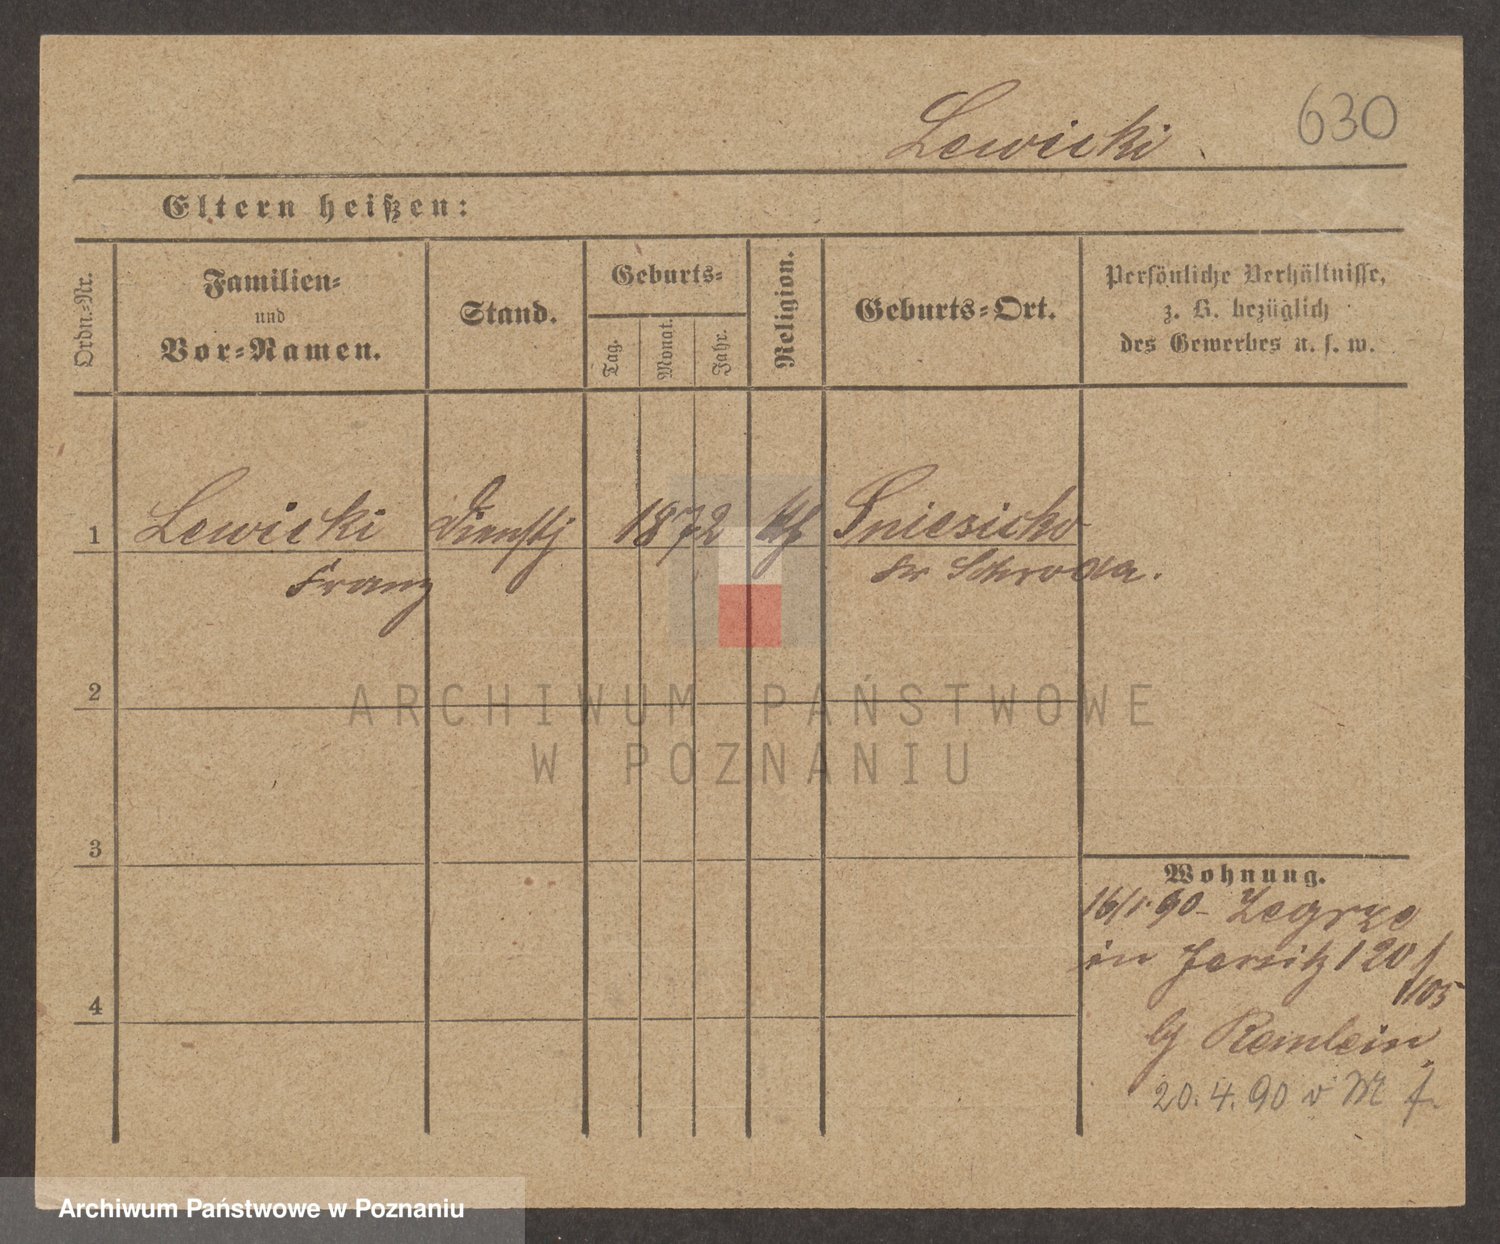 Lewicki
630
Eltern heißen:
Ordn.-Nr.
Familien-
und
Vor-Namen.
Stand.
Geburts-
Tag.
Monat.
Jahr.
Religion.
Geburts-Ort.
Persönliche Verhältnisse,
z. B. bezüglich
des Gewerbes u. s. w.
1 Lewicki Dienstj 1872 kth
Franz Kr Schroda.
2
ARCHIWUM PAŃSTWOWE
W POZNANIU
3
Wohnung.
16/1 90 - Zegrze
in Jersitz 120/
105
4
bj Remlein
20.4.90 v M
Archiwum Państwowe w Poznaniu